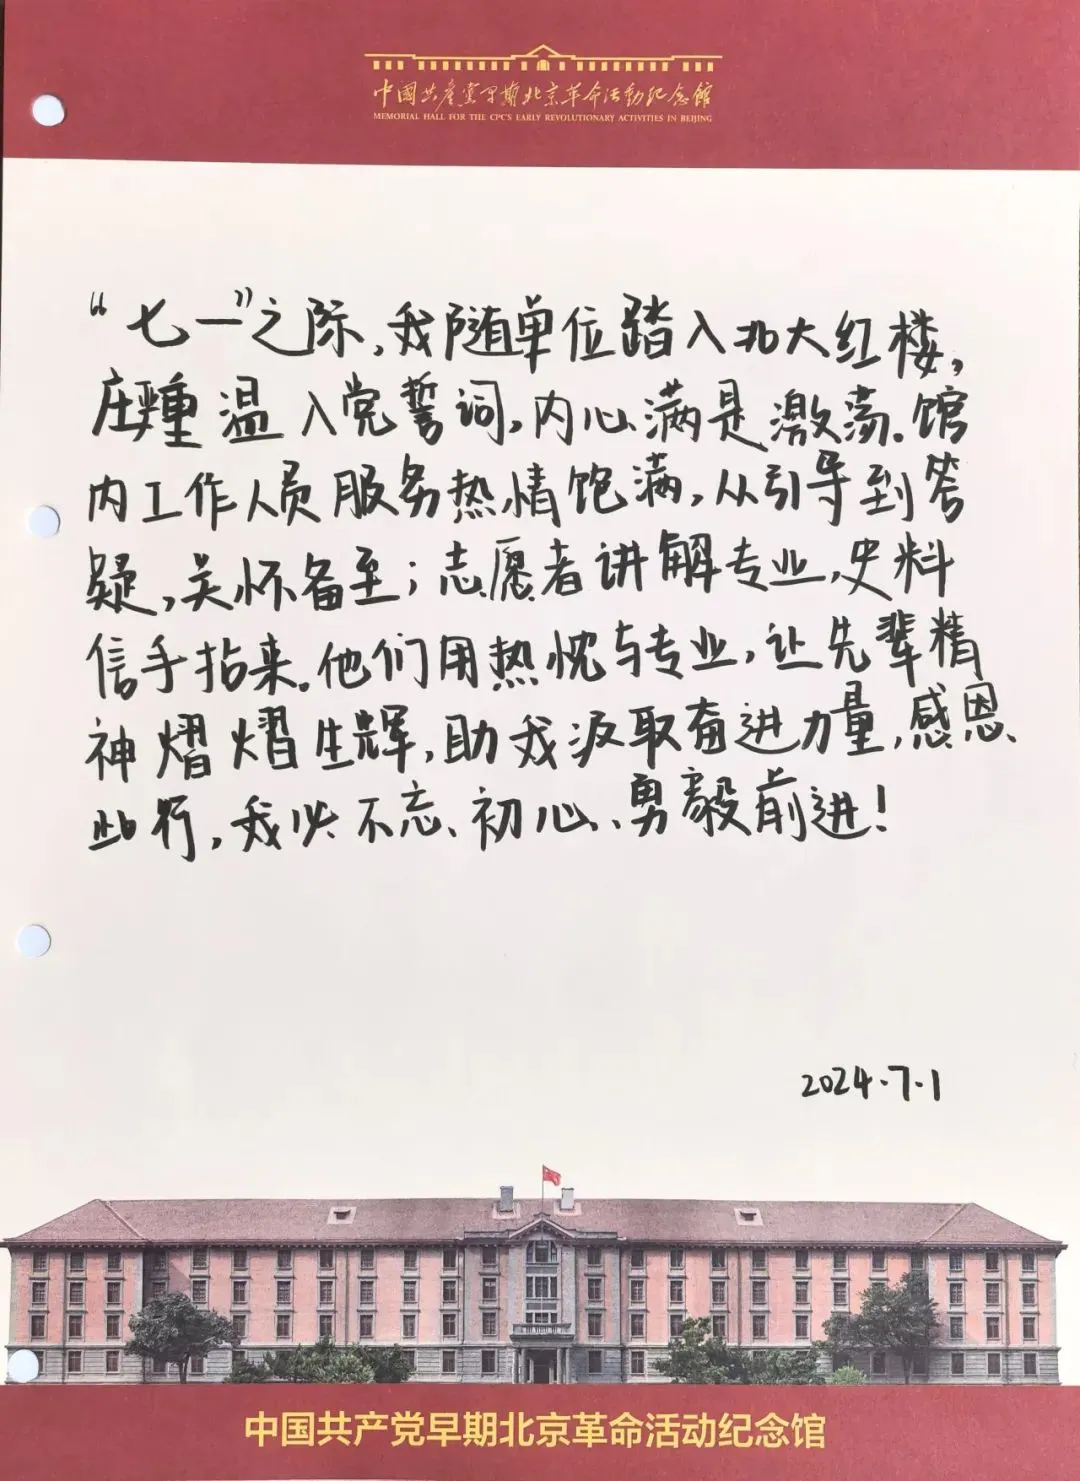 中國共產黨早期北京革命活動纪念館
MEMORIAL HALL FOR THE CPC'S EARLY REVOLUTIONARY ACTIVITIES IN BEIJING
“七一”之际,我随单位踏入北大红楼,
庄重温入党誓词,内心满是激荡。馆
内工作人员服务热情饱满,从引导到答
疑,关怀备至;志愿者讲解专业,史料
信手拈来。他们用热忱与专业,让先辈精
神熠熠生辉,助我汲取奋进力量,感恩、
此行,我必不忘、初心、勇毅前进!
2024.7.1
中国共产党早期北京革命活动纪念馆